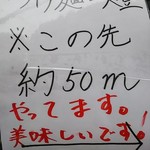 ※この先
約50m
やってます。
美味しいです!